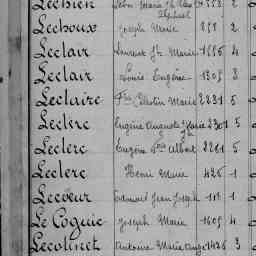 Lechien Léon Marie 2
Alphonse
Lechoux Joseph Marie 2
Leclair Laurent Marie 4
Leclair Louis Eugène 3
Leclaire Célestin Marie 2231 5
Leclerc Eugène Auguste Marie 2301 5
Leclerc Eugène Albert 2261 5
Leclerc Henri Marie 426 1
Lecoeur Edouard Jean Joseph 1
Le Coguic Joseph Marie 1605 4
Lecolinet Antoine Marie Ange 1426 3